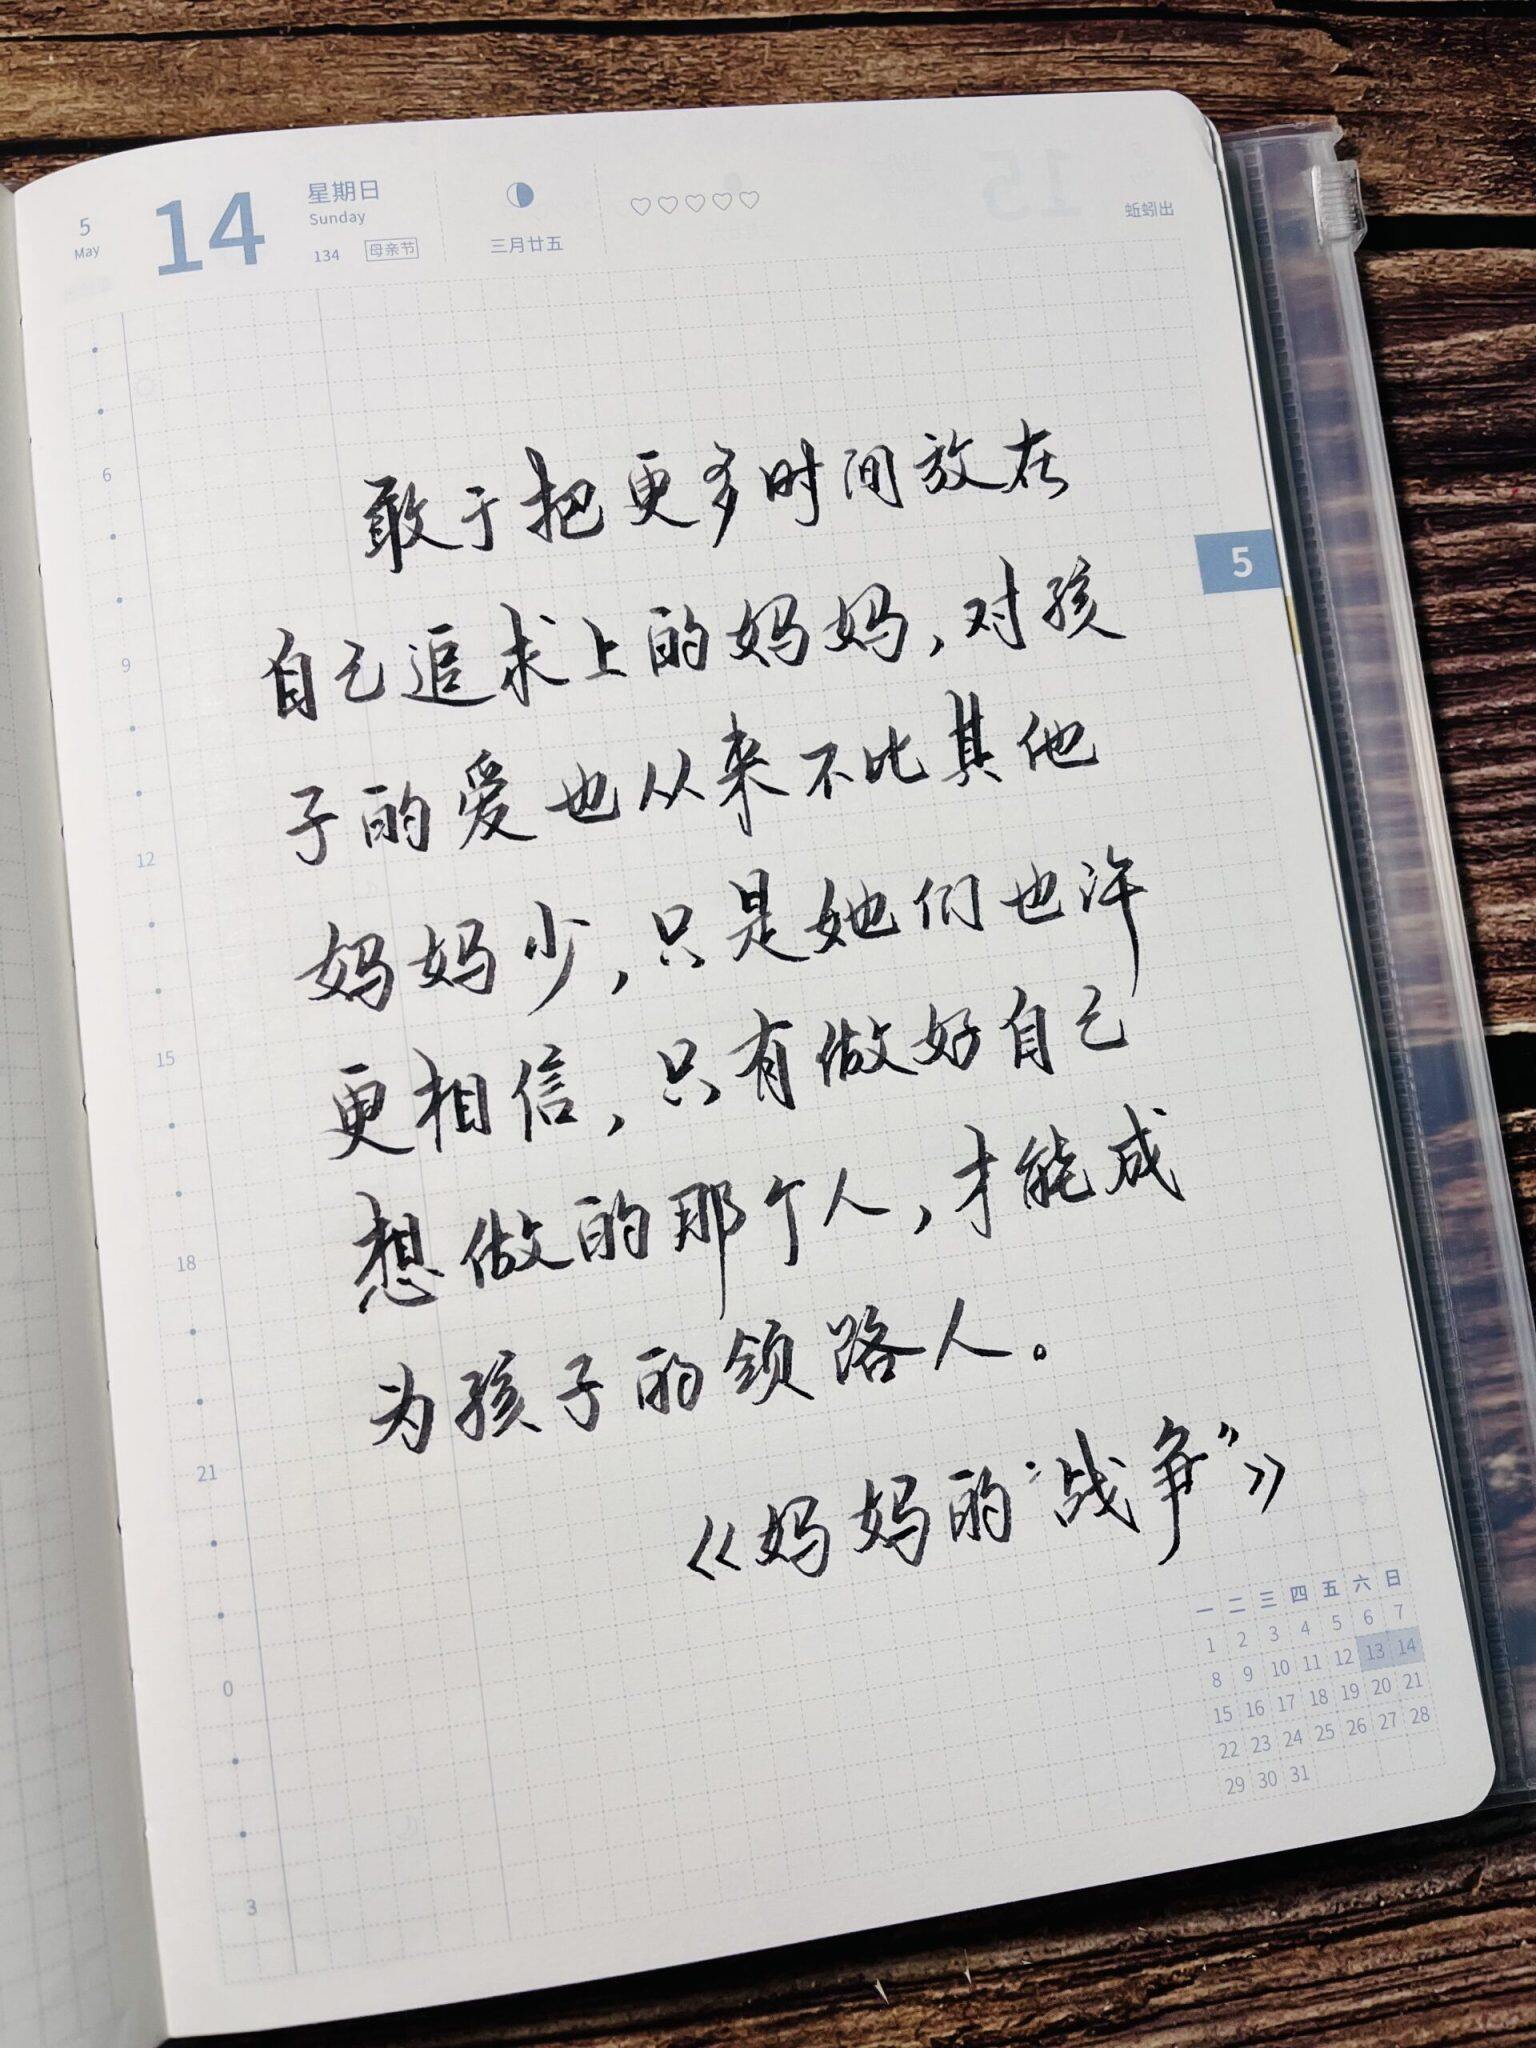 5
May
14
星期日
Sunday
134 母亲节
三月廿五
蚯蚓出
敢于把更多时间放在
自己追求上的妈妈，对孩
子的爱也从来不比其他
妈妈少，只是她们也许
更相信，只有做好自己
想做的那个人，才能成
为孩子的领路人。
《妈妈的“战争”》
5
6
9
12
15
18
21
0
3
一 二 三 四 五 六 日
1 2 3 4 5 6 7
8 9 10 11 12 13 14
15 16 17 18 19 20 21
22 23 24 25 26 27 28
29 30 31